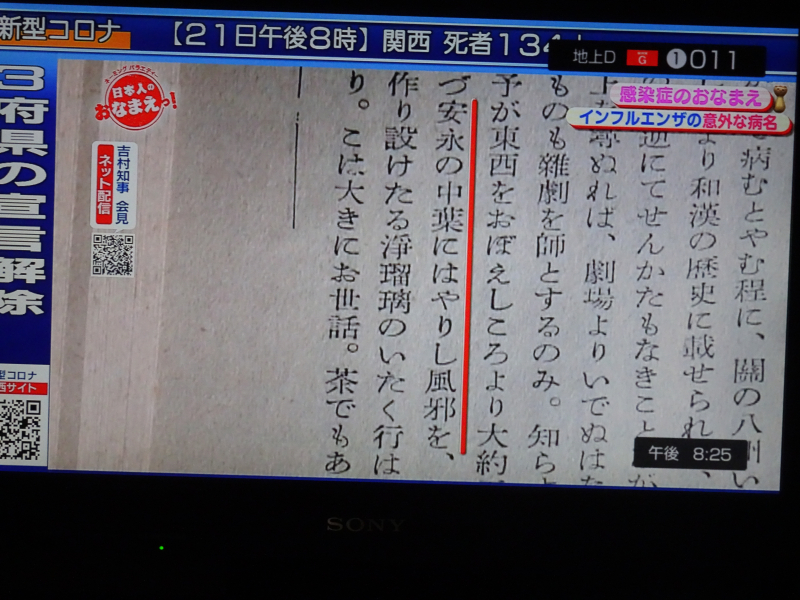 新型コロナ
【21日午後8時】関西 死者134
地上D G 1 011
感染症のおなまえ
インフルエンザの意外な病名
ネーミングバラエティー
日本人の
おなまえっ!
吉村知事 会見
ネット配信
3府県の宣言解除
型コロナ
西サイト
病むとやむ程に、關の八州い
より和漢の歴史に載せられ、
逆にてせんかたもなきこと
上を尋ぬれば、劇場よりいでぬはた
ものも雜劇を師とするのみ。知らと
予が東西をおぼえしころより大約
づ安永の中葉にはやりし風邪を、
作り設けたる淨瑠璃のいたく行は
り。こは大きにお世話。茶でもあ
午後 8:25
SONY